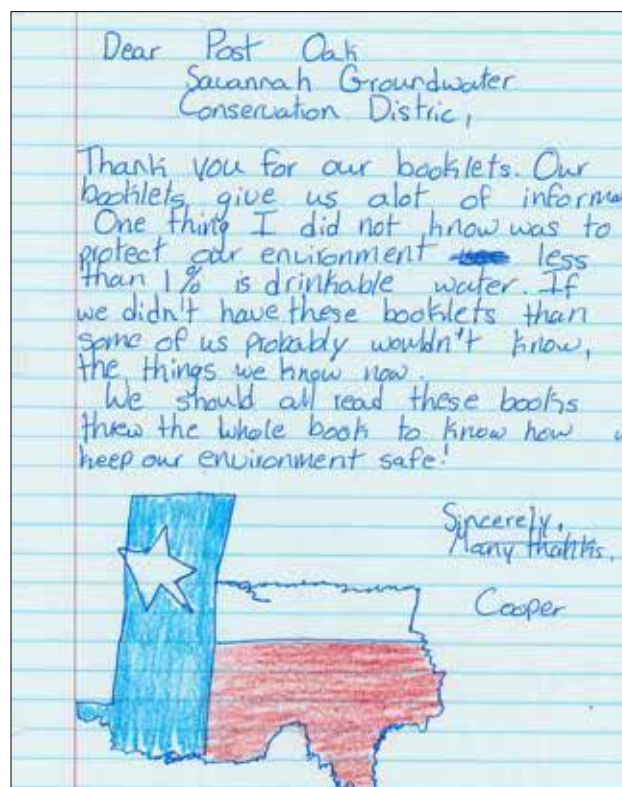 Dear Post Oak
Savannah Groundwater
Conservation Distric,
Thank you for our booklets. Our
booklets give us alot of informa
One thing I did not know was to
protect our environment less
than 1% is drinkable water. If
we didn't have these booklets than
some of us probably wouldn't know,
the things we know now.
We should all read these books
threw the whole book to know how
keep our environment safe!
Sincerely,
Many thanks,
Cooper